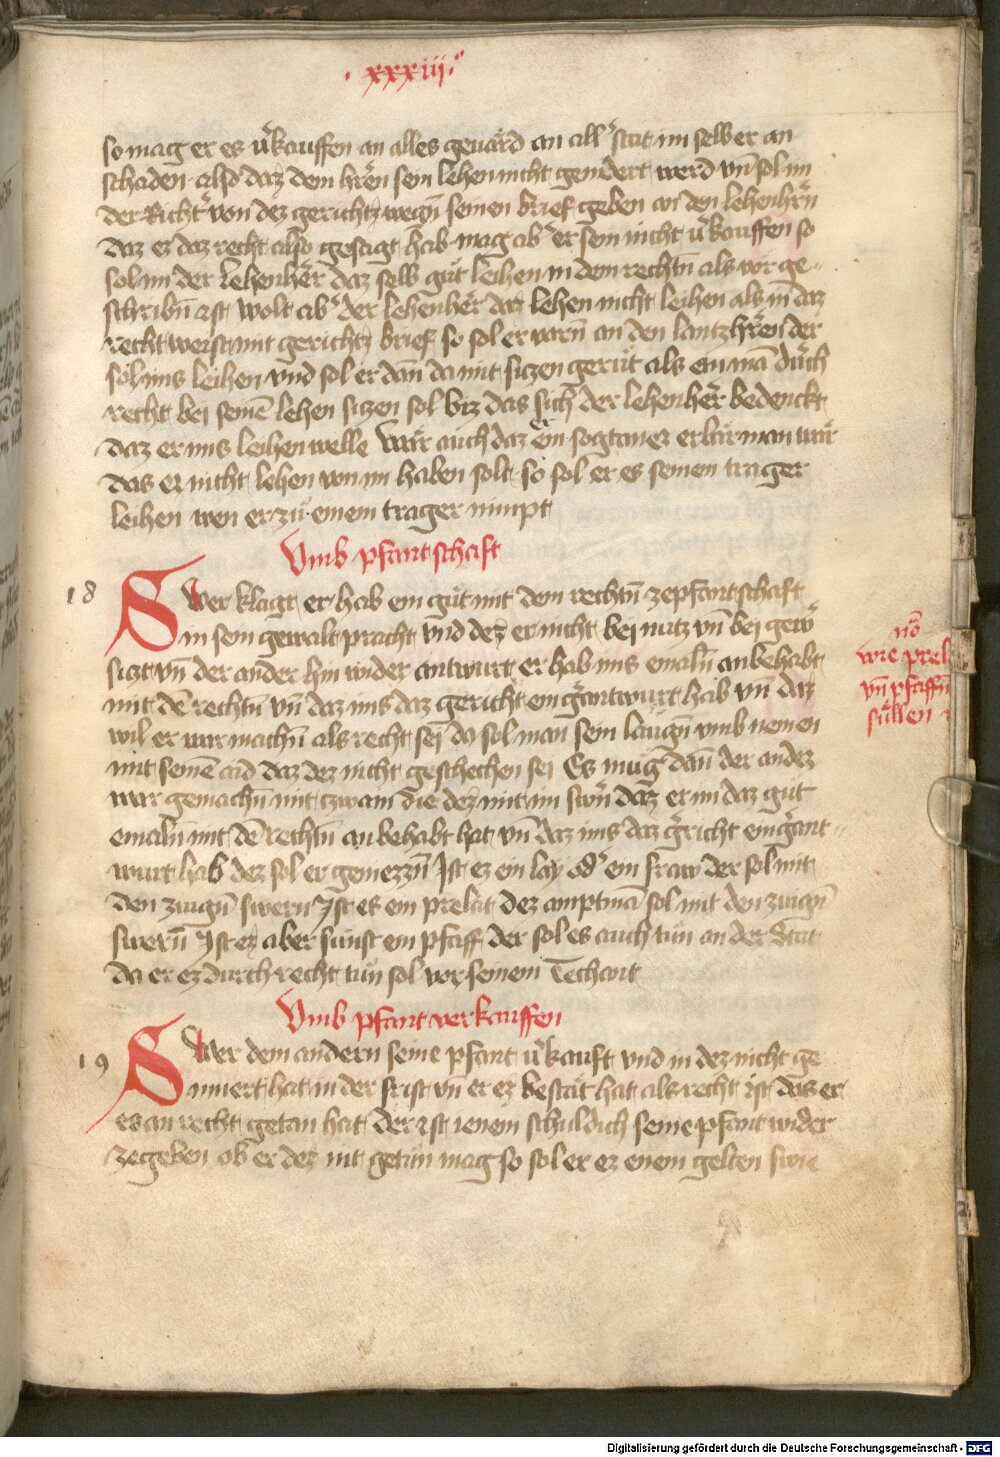 . xxxiij.
so mag er es v̓kauffen an alles geuard an all stat im selber an
schaden also daz dem hr̄en sein lehen nicht gemdert werd vn̄ sol im
der Richt̓ von dez gerichtz wegn̄ seinen brief geben an den lehenhr̄n
daz er daz recht also gesagt hab mag ab̓ er sein nicht v̓kauffen so
sol im der Lehenher̄ daz selb gůt leihen in dem rechtn̄ als vor ge-
schribn̄ ist wolt ab̓ der lehenher̄ daz lehen nicht leihen als in daz
recht weist mit gerichtz brief so sol er varn̄ an den lantzhr̄en der
sol ims leihen vnd sol er dan̄ da mit siczen gerůt als ein mā durch
recht bei seinē lehen siczen sol biz das sich der lehenher̄ bedenckt
daz er ims leihen welle Wär auch daz ein sogtaner erbär man wär
das er nicht lehen von im haben solt so sol er es seinem trager
leihen wen er zů einem trager nimpt
Vmb pfantschaft
18 Swer klagt er hab ein gůt mit dem rechtn̄ ze pfantschaft
in sein gewalt pracht vnd dez er nicht bei nutz vn̄ bei gew̓
siczt vn̄ der ander hin wider antwurt er hab ims emaln̄ an behabt
mit dē rechtn̄ vn̄ daz ims daz gericht eingantwurt hab vn̄ daz
wil er war machn̄ als recht sei da sol man sein laugn̄ vmb nemen
mit seinē aid daz dez nicht geschechen sei Es mug dan̄ der ander
war gemachn̄ mit zwain die dez mit im swrn̄ daz er im daz gut
emaln̄ mit dē rechtn̄ an behabt hat vn̄ daz ims daz gericht eingant-
wurt hab dez sol er geniezzn̄ Ist ez ein lay od̓ ein fraw der sol mit
den zwgn̄ swern Ist es ein prelat dez amptmā sol mit den zwgn̄
swern̄ Ist ez aber sunst ein pfaff der sol es auch tun an der stat
da er ez durch recht tun sol vor seinem Techant
nō
wie prel
vn̄ pfaffn̄
süllen
Vmb pfant verkauffen
19 Swer dem andern seine pfant v̓kauft vnd in dez nicht ge
innert hat in der frist vn̄ er ez bestät hat als recht ist das er
es an recht getan hat der ist ienem schuldich seine pfant wider
ze geben ob er dez nit getun mag so sol er ez enem gelten swie
Digitalisierung gefördert durch die Deutsche Forschungsgemeinschaft - DFG